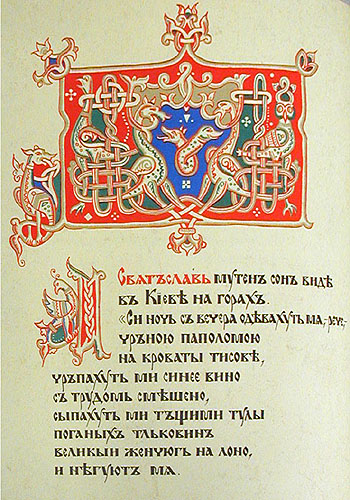 А Свѧтъславь мутен сон видѣ
въ Кіевѣ на горах.
«Си ночь съ вечера одѣвахуть мѧ,-рече,-
чръною паполомою
на кроваты тисовѣ,
чръпахуть ми синее вино
съ трудомь смѣшено,
сыпахуть ми тъщими тулы
поганых тльковинъ
великыи женчюгь на лоно,
и нѣгуют мѧ.